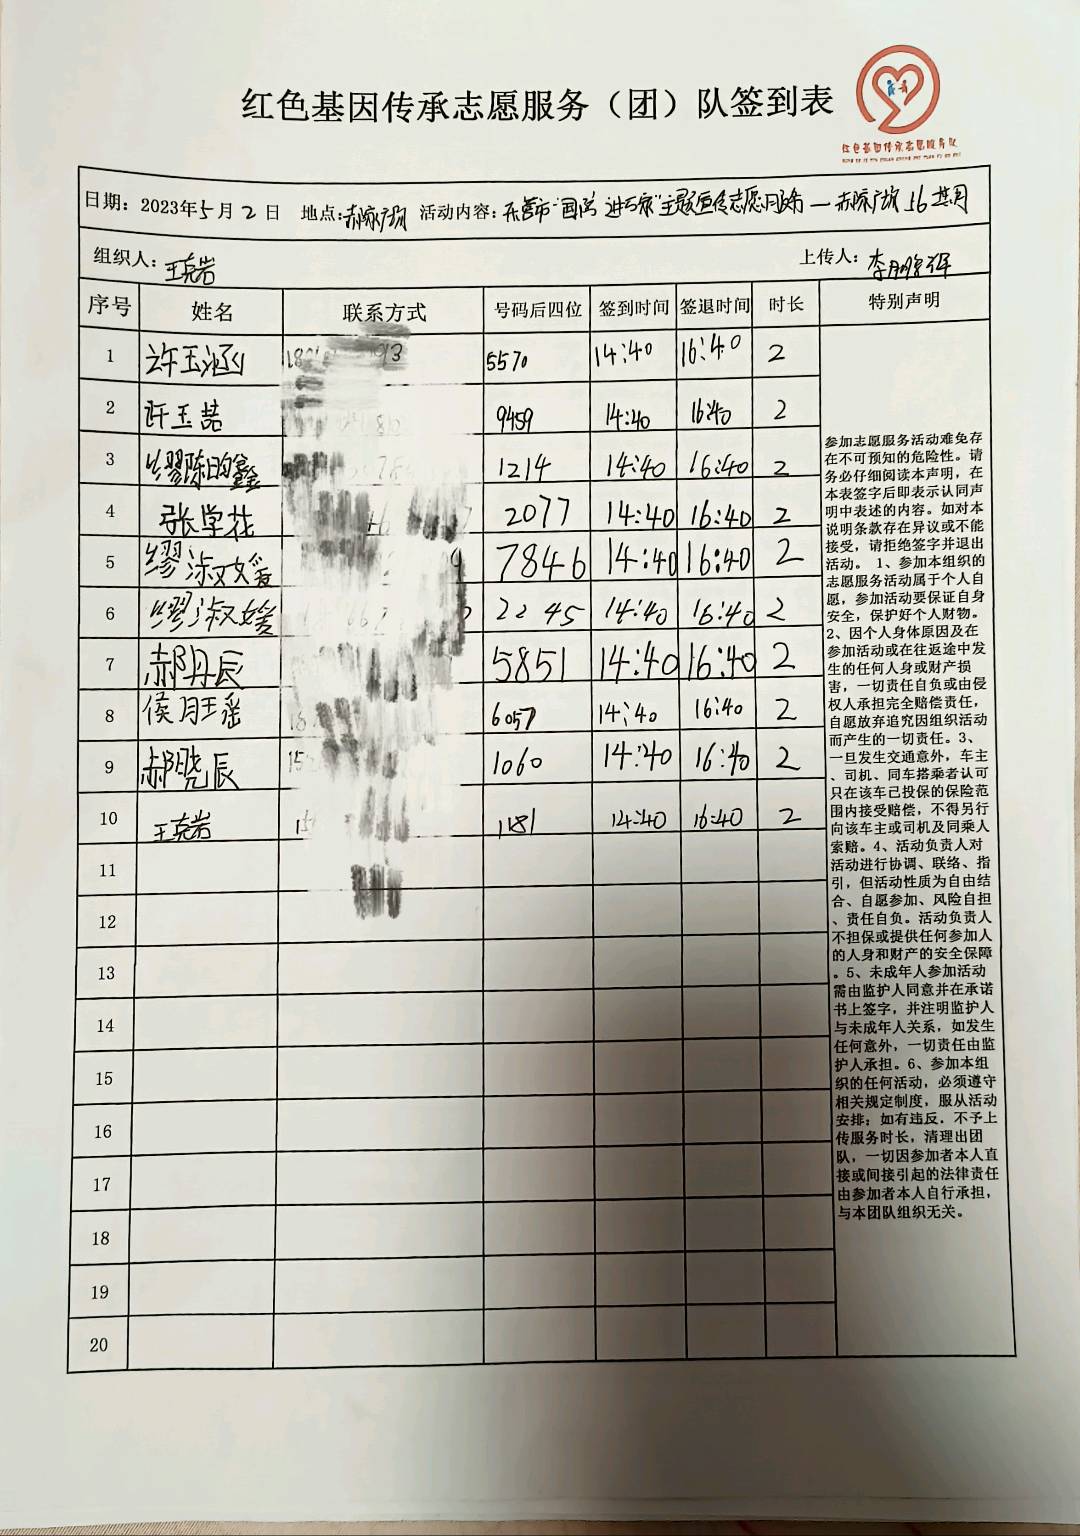 红色基因传承志愿服务（团）队签到表
红色基因传承志愿服务队
日期：2023年5月2日 地点：赤脉广场 活动内容：东营市“国防进万家”主题宣传志愿服务—赤脉广场 16共同
组织人：王克岩 上传人：李
序号 姓名 联系方式 号码后四位 签到时间 签退时间 时长 特别声明
1 许玉涵 5570 14:40 16:40 2
2 许玉喆 9459 14:40 16:40 2
3 缪陈昫鑫 1214 14:40 16:40 2
4 张学花 2077 14:40 16:40 2
5 缪淑媛 7846 14:40 16:40 2
6 缪淑媛 2245 14:40 16:40 2
7 郝丹辰 5851 14:40 16:40 2
8 侯月瑶 6057 14:40 16:40 2
9 郝晓辰 1060 14:40 16:40 2
10 王克岩 1181 14:40 16:40 2
11
12
13
14
15
16
17
18
19
20
参加志愿服务活动难免存
在不可预知的危险性。请
务必仔细阅读本声明，在
本表签字后即表示认同声
明中表述的内容。如对本
说明条款存在异议或不能
接受，请拒绝签字并退出
活动。 1、参加本组织的
志愿服务活动属于个人自
愿，参加活动要保证自身
安全，保护好个人财物。
2、因个人身体原因及在
参加活动或在往返途中发
生的任何人身或财产损
害，一切责任自负或由侵
权人承担完全赔偿责任，
自愿放弃追究因组织活动
而产生的一切责任。3、
一旦发生交通意外，车主
、司机、同车搭乘者认可
只在该车已投保的保险范
围内接受赔偿，不得另行
向该车主或司机及同乘人
索赔。4、活动负责人对
活动进行协调、联络、指
引，但活动性质为自由结
合、自愿参加、风险自担
、责任自负。活动负责人
不担保或提供任何参加人
的人身和财产的安全保障
。5、未成年人参加活动
需由监护人同意并在承诺
书上签字，并注明监护人
与未成年人关系，如发生
任何意外，一切责任由监
护人承担。6、参加本组
织的任何活动，必须遵守
相关规定制度，服从活动
安排；如有违反，不予上
传服务时长，清理出团
队，一切因参加者本人直
接或间接引起的法律责任
由参加者本人自行承担，
与本团队组织无关。